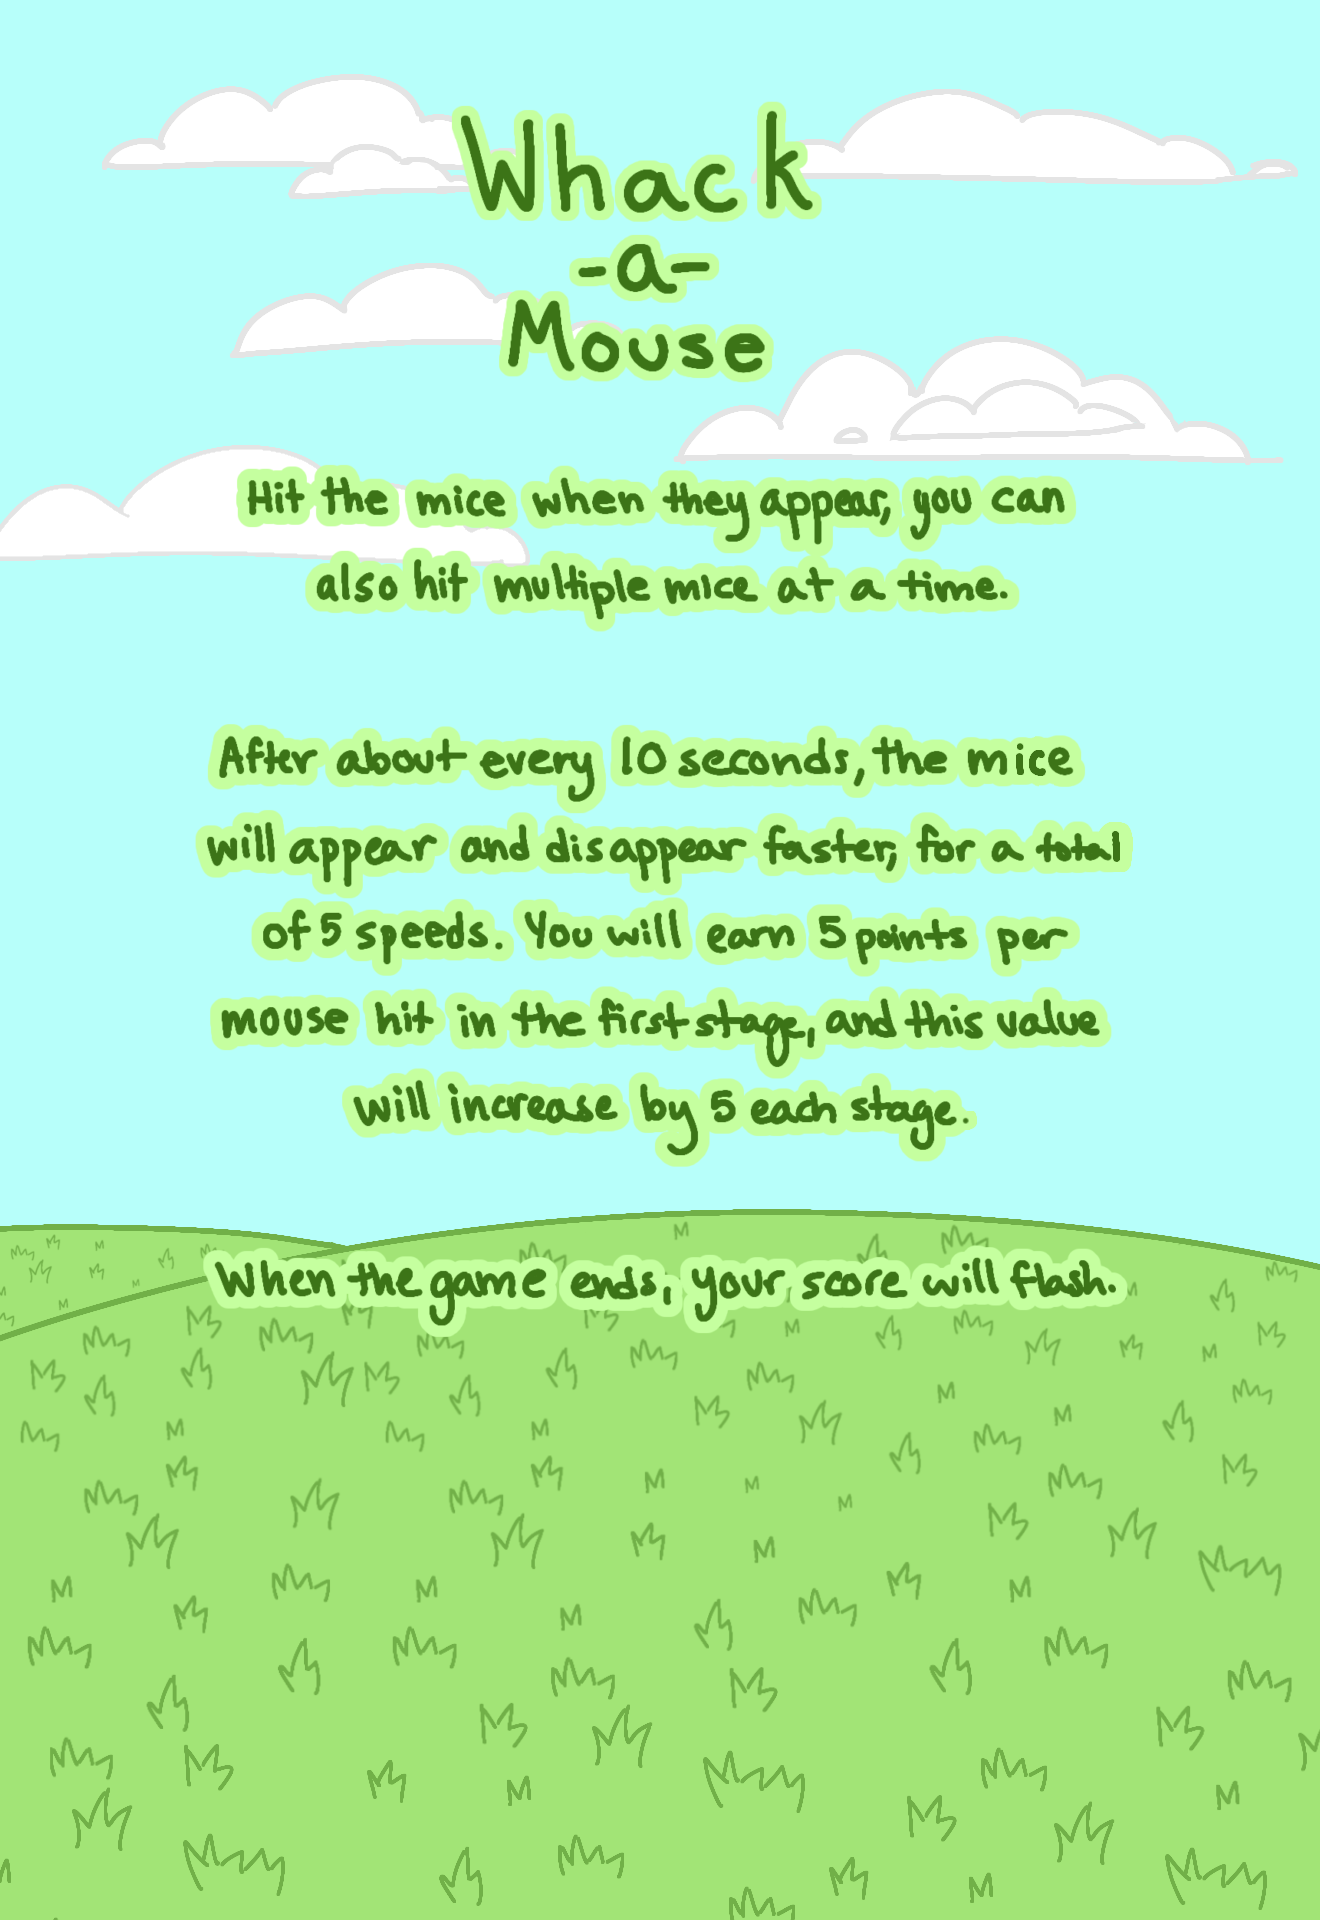 Whack
-a-
Mouse
Hit the mice when they appear, you can
also hit multiple mice at a time.
After about every 10 seconds, the mice
will appear and disappear faster, for a total
of 5 speeds. You will earn 5 points per
mouse hit in the first stage, and this value
will increase by 5 each stage.
When the game ends, your score will flash.